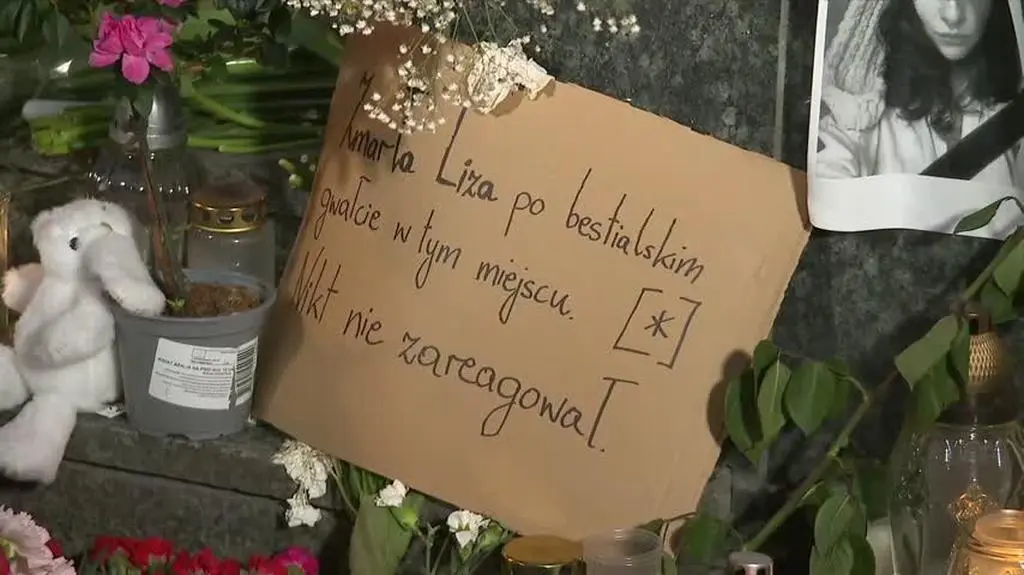 Zmarła Liza po bestialskim
gwałcie w tym miejscu. [*]
Nikt nie zareagował.